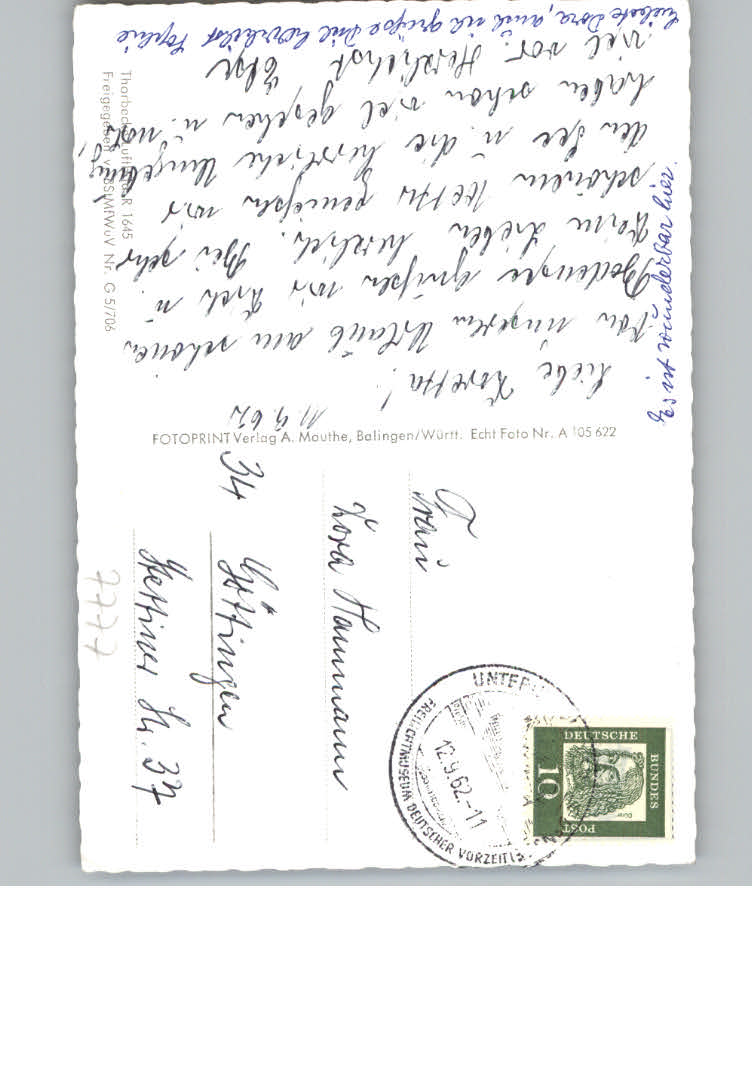 11.9.62
Liebe Dora!
Von unserem Urlaub am schönen
Bodensee grüßen wir Dich u.
Deine Lieben herzlich. Bei sehr
schönem Wetter genießen wir
den See u. die herrliche Umgebung,
haben schon viel gesehen u. noch
viel vor. Herzlichst
Else
Liebste Dora, auch ich grüße Dich herzlichst Sophie
Es ist wunderbar hier.
Thorbecke Luftbild R 1645
Freigegeben v. BStMfWuV Nr. G 5/706
FOTOPRINT Verlag A. Mauthe, Balingen/Württ. Echt Foto Nr. A 105 622
Frau
Dora Hammann
34 Göttingen
Stettiner Str. 37
7777
UNTERU
12.9.62.-11
FREILICHTMUSEUM DEUTSCHER VORZEIT
DEUTSCHE
BUNDES
POST
10
Dürer